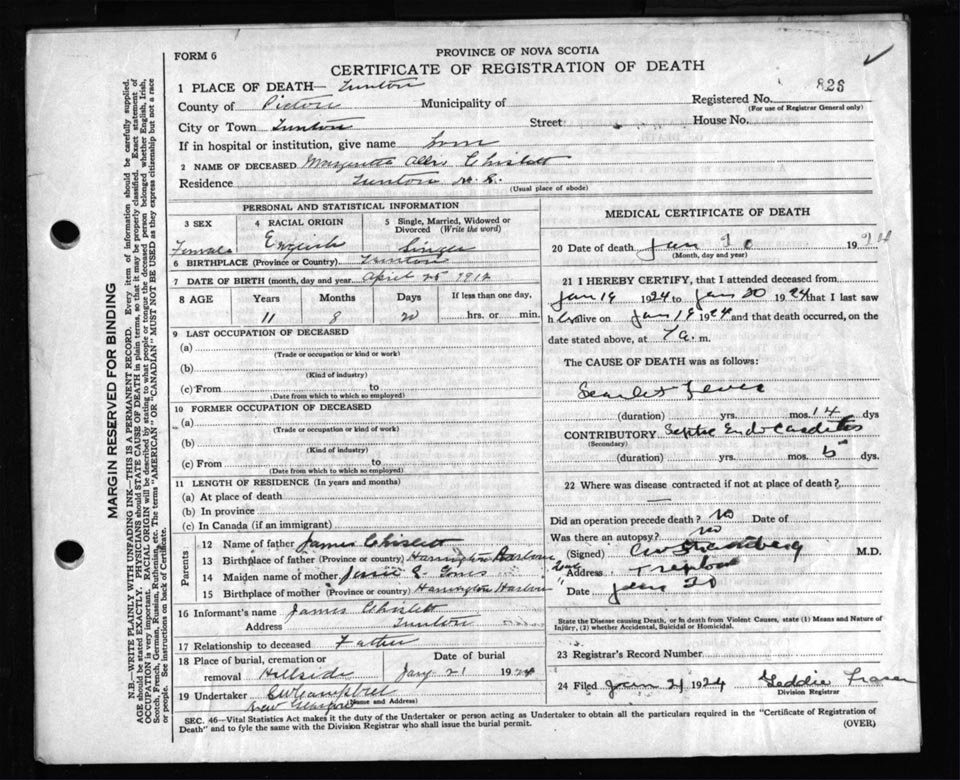 FORM 6
PROVINCE OF NOVA SCOTIA
CERTIFICATE OF REGISTRATION OF DEATH
1 PLACE OF DEATH—
826
County of Pictou Municipality of
Registered No.
(For use of Registrar General only)
City or Town Street House No.
If in hospital or institution, give name
2 NAME OF DECEASED Chislett
Residence N. S.
(Usual place of abode)
PERSONAL AND STATISTICAL INFORMATION
3 SEX
Female
4 RACIAL ORIGIN
English
5 Single, Married, Widowed or Divorced (Write the word)
Single
6 BIRTHPLACE (Province or Country)
7 DATE OF BIRTH (month, day and year) April 25 1912
8 AGE Years Months Days If less than one day,
11 8 20 hrs. or min.
9 LAST OCCUPATION OF DECEASED
(a)
(Trade or occupation or kind or work)
(b)
(Kind of industry)
(c) From to
(Date from which to which so employed)
10 FORMER OCCUPATION OF DECEASED
(a)
(Trade or occupation or kind of work)
(b)
(Kind of industry)
(c) From to
(Date from which to which so employed)
11 LENGTH OF RESIDENCE (In years and months)
(a) At place of death
(b) In province
(c) In Canada (if an immigrant)
Parents
12 Name of father James Chislett
13 Birthplace of father (Province or country) Harrington Harbour
14 Maiden name of mother
15 Birthplace of mother (Province or country) Harrington Harbour
16 Informant's name James Chislett
Address
17 Relationship to deceased Father
18 Place of burial, cremation or removal Hillside
Date of burial
Jany 21 1924
19 Undertaker
(Name and Address)
New Glasgow
MEDICAL CERTIFICATE OF DEATH
20 Date of death Jan 20 1924
(Month, day and year)
21 I HEREBY CERTIFY, that I attended deceased from
Jan 19 1924 to Jan 20 1924 that I last saw
h er alive on Jan 19 1924 and that death occurred, on the
date stated above, at 7 a. m.
The CAUSE OF DEATH was as follows:
Scarlet Fever
(duration) yrs. mos. 14 dys
CONTRIBUTORY Septic Endocarditis
(Secondary)
(duration) yrs. mos. 5 dys.
22 Where was disease contracted if not at place of death?
—
Did an operation precede death? no Date of
Was there an autopsy? no
(Signed) M.D.
Address Trenton
Date Jan 20
State the Disease causing Death, or in death from Violent Causes, state (1) Means and Nature of
Injury, (2) whether Accidental, Suicidal or Homicidal.
23 Registrar's Record Number
24 Filed Jan 21 1924 Fraser
Division Registrar
SEC. 46—Vital Statistics Act makes it the duty of the Undertaker or person acting as Undertaker to obtain all the particulars required in the "Certificate of Registration of
Death" and to fyle the same with the Division Registrar who shall issue the burial permit.
(OVER)
MARGIN RESERVED FOR BINDING
N.B.—WRITE PLAINLY WITH UNFADING INK—THIS IS A PERMANENT RECORD. Every item of information should be carefully supplied.
AGE should be stated EXACTLY. PHYSICIANS should STATE CAUSE OF DEATH in plain terms, so that it may be properly classified. Exact statement of
OCCUPATION is very important. RACIAL ORIGIN will be described by stating to what people or tongue the deceased person belonged, whether English, Irish,
Scotch, French, German, Russian, Ruthenian, etc. The terms "AMERICAN" OR "CANADIAN" MUST NOT BE USED as they express citizenship but not a race
or people. See instructions on back of Certificate.